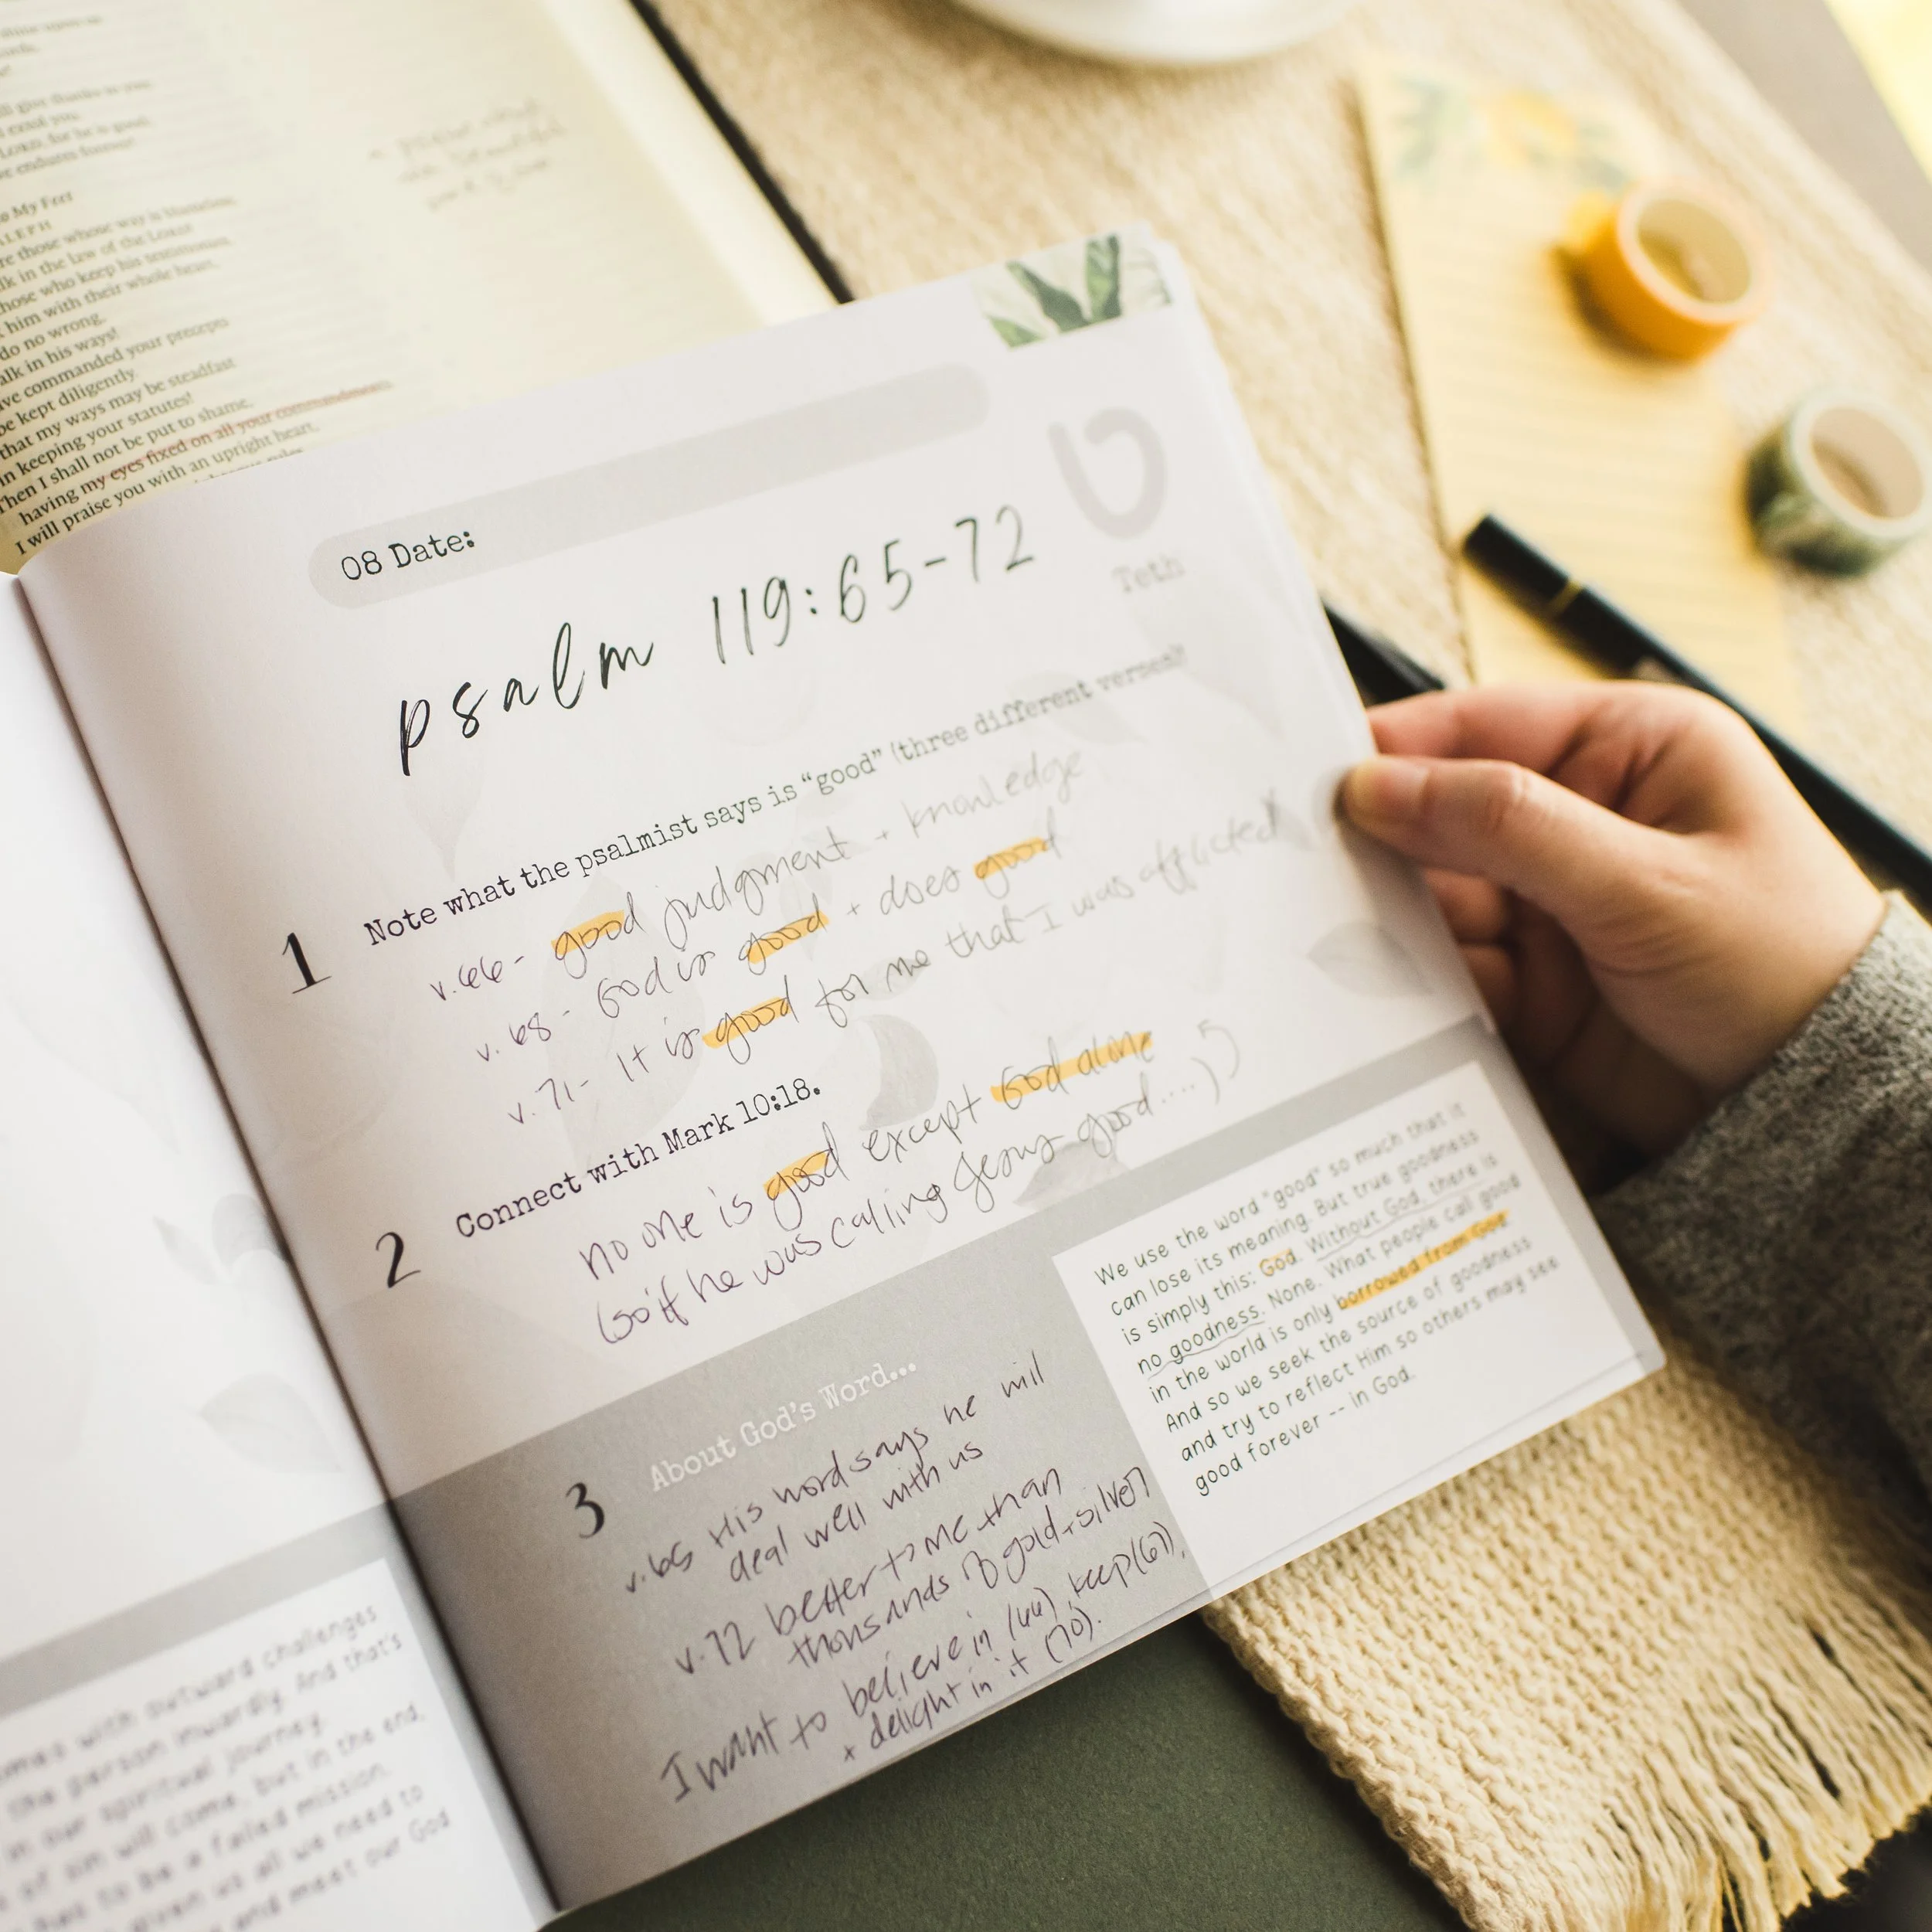 ill give thanks to you
extol you.
LORD, for he is good;
endures forever
to My Feet
ALEPH
those whose way is blameless,
in the law of the LORD!
those who keep his testimonies,
him with their whole heart,
do no wrong,
walk in his ways!
have commanded your precepts
be kept diligently.
that my ways may be steadfast
in keeping your statutes!
Then I shall not be put to shame,
having my eyes fixed on all your commandments.
I will praise you with an upright heart,
08 Date:
psalm 119:65-72
Teth
1 Note what the psalmist says is “good” (three different verses)!
v.66 - good judgment + knowledge
v. 68 - God is good + does good
v. 71 - It is good for me that I was afflicted
2 Connect with Mark 10:18.
no one is good except God alone
(so if he was calling Jesus good....)
3 About God's Word...
v.65 His word says he will
deal well with us
v.72 better to me than
thousands of gold + silver
I want to believe in (66), keep (67),
+ delight in it (70).
We use the word “good” so much that it
can lose its meaning. But true goodness
is simply this: God. Without God, there is
no goodness. None. What people call good
in the world is only borrowed from God
And so we seek the source of goodness
and try to reflect Him so others may see
good forever -- in God.
with outward challenges
the person inwardly. And that's
in our spiritual journey.
of sin will come, but in the end,
has to be a failed mission.
given us all we need to
and meet our God